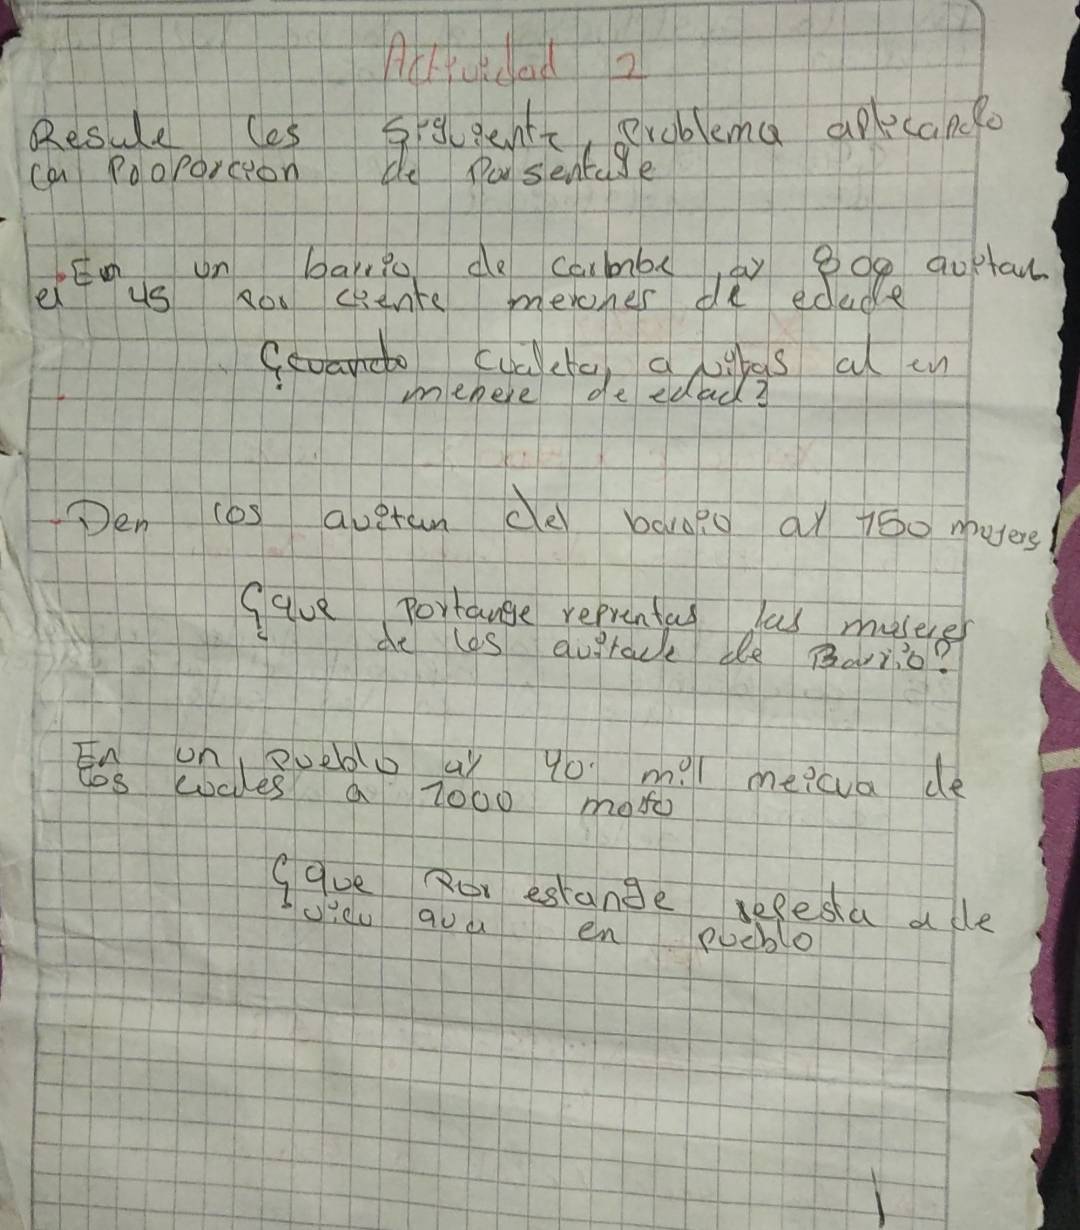 Actividad 2
Resule les siguiente problema aplicando
ca Poporcion de Porsentage
En un barrio de carbnbe ay 800 auitan
el 45 Por ciente merones de edade
¿Cuando cualeta a vitas al en
menere de edad?
Den los auitan del barrio ay 150 mujeres
¿que Portange reprentas las museres
de los auitade de Barrio?
En un pueblo ay 40 mil meicua de
los cuales a 1000 moto
¿que Por estange repesta a de
vicu aua en pueblo